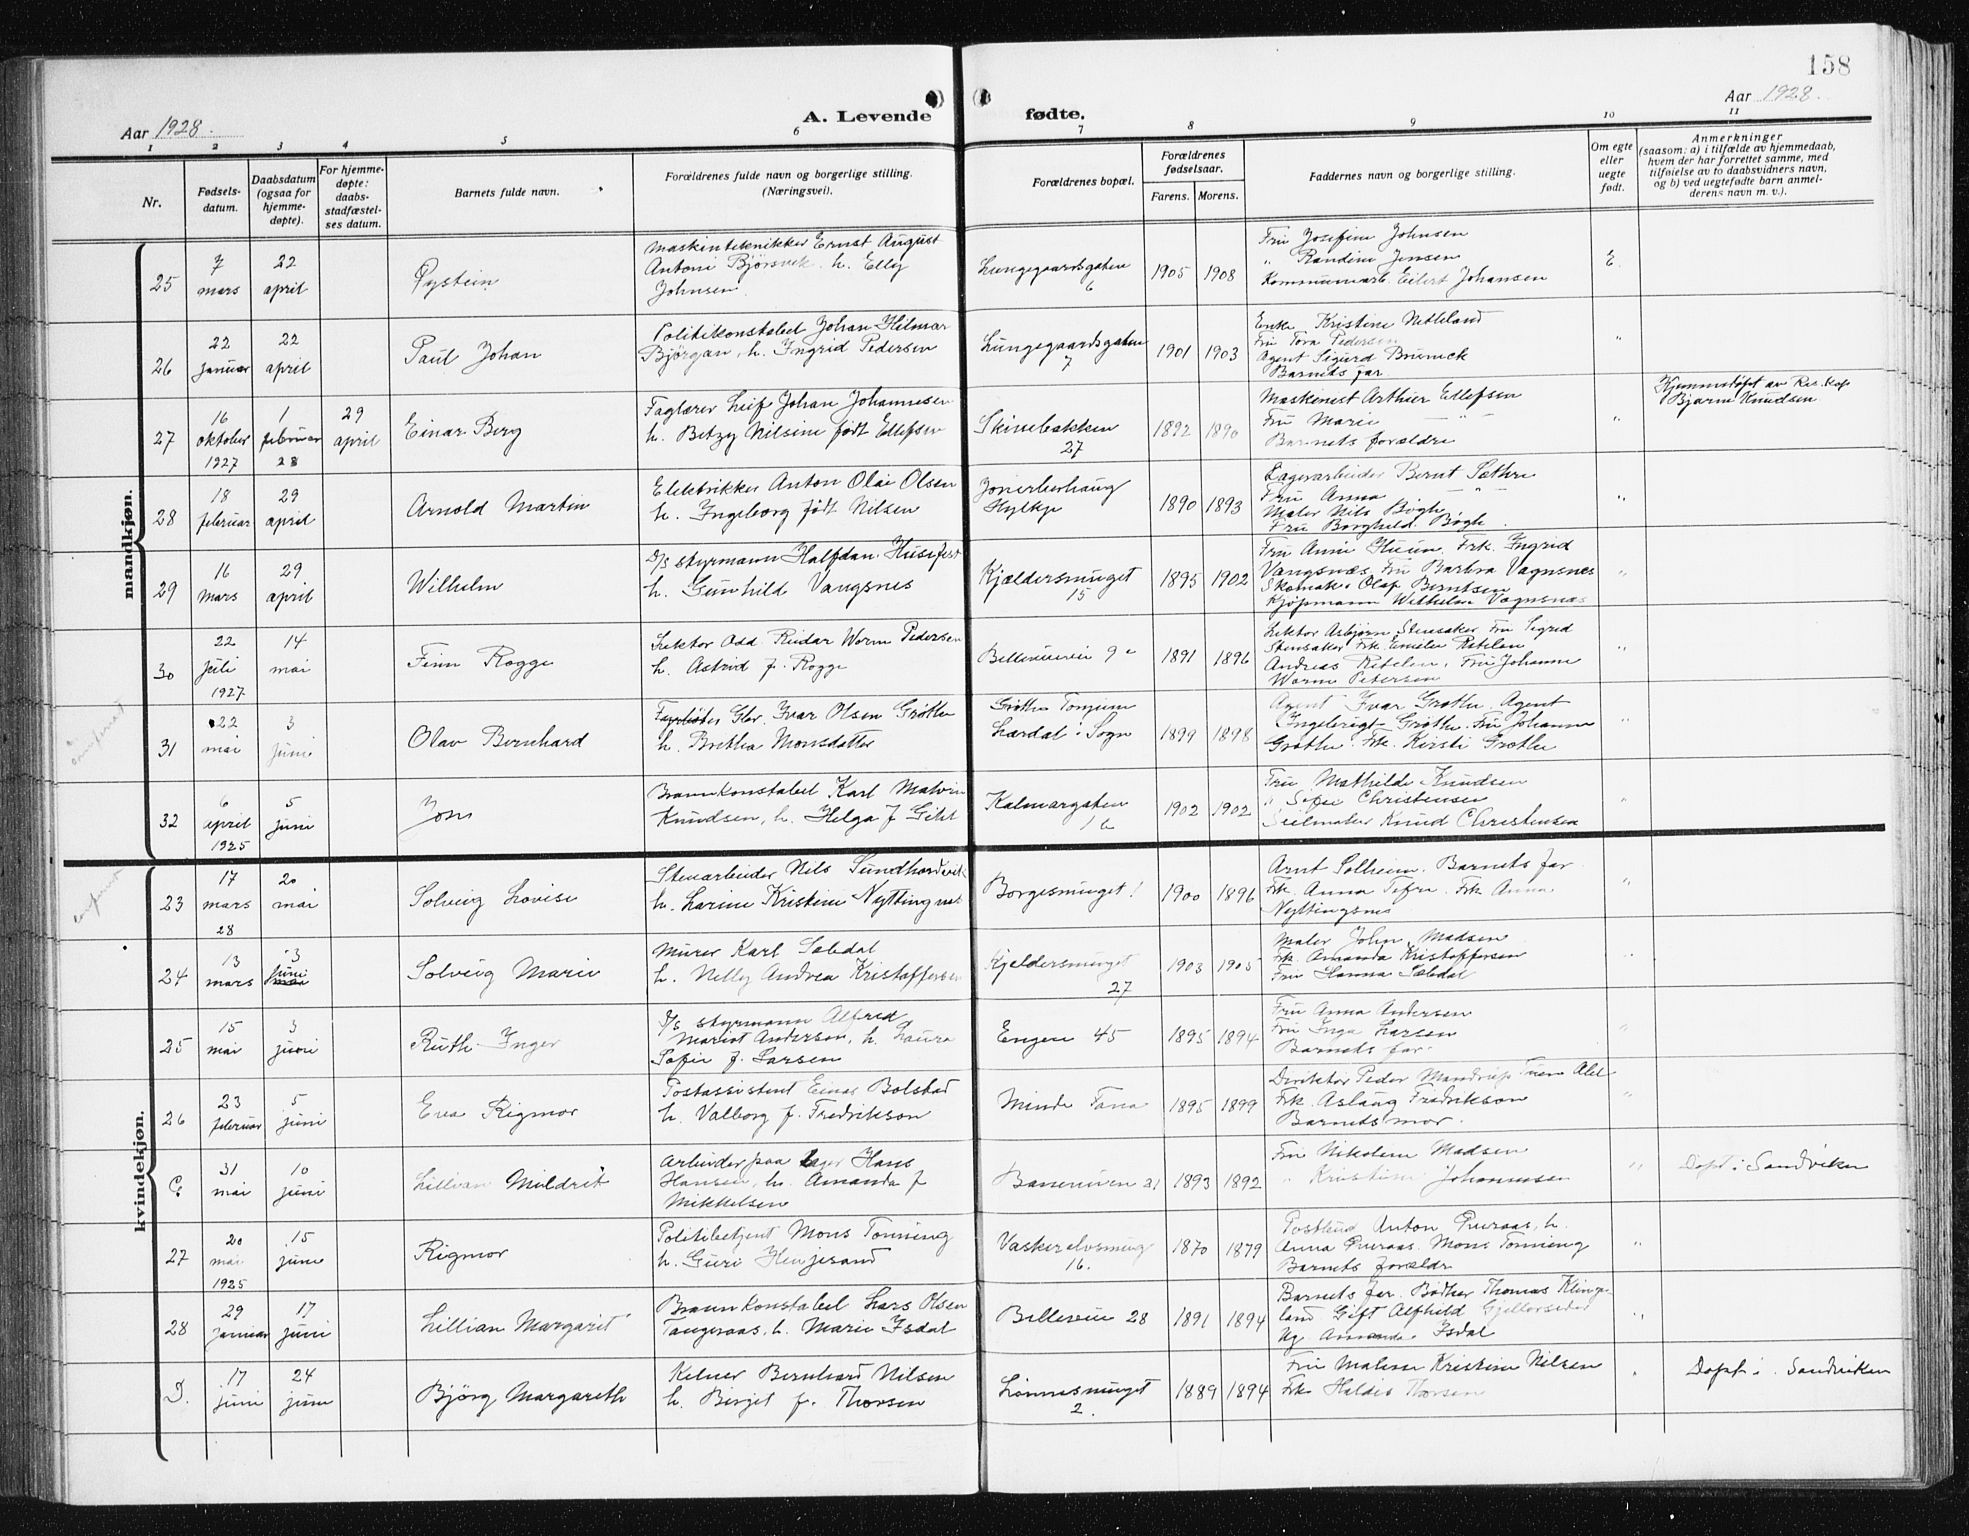 158
Aar 1928.
A. Levende
fødte.
Aar 1928.
1 2 3 4 5 6 7 8 9 10 11
Nr.
Fødsels-
datum.
Daabsdatum
(ogsaa for
hjemme-
døpte).
For hjemme-
døpte:
daabs-
stadfæstel-
ses datum.
Barnets fulde navn.
Forældrenes fulde navn og borgerlige stilling.
(Næringsvei).
Forældrenes bopæl.
Forældrenes
fødselsaar.
Farens. Morens.
Faddernes navn og borgerlige stilling.
Om egte
eller
uegte
født.
Anmerkninger
(saasom: a) i tilfælde av hjemmedaab,
hvem der har forrettet samme, med
tilføielse av to daabsvidners navn,
og b) ved uegtefødte barn anmel-
derens navn m. v.).
mandkjøn.
25
7
mars
22
april
Øystein
Maskintekniker Ernst August
Antoni Bjørsvik, h. Elly
Johnsen
Lungegaardsgaten
6
1905 1908
Fru Josefine Johnsen
" Randine Jensen
Kommunearb. Eilert Johansen
E.
26
22
januar
22
april
Paul Johan
Politikonstabel Johan Hilmar
Bjørgan, h. Ingrid Pedersen
Lungegaardsgaten
7
1901 1903
Enke Kristine Netteland
Fru Tora Pedersen
Agent Sigurd Bruneck
Barnets far.
"
27
16
oktober
1927
1
februar
28
29
april
Einar Berg
Faglærer Leif Johan Johannesen
h. Betzy Nilsine født Ellefsen
Skivebakken
27
1892 1890
Maskinist Arthur Ellefsen
Fru Marie — " —
Barnets forældre
"
Hjemmedøpt av Res. kap
Bjarne Knudsen
28
18
februar
29
april
Arnold Martin
Elektriker Anton Olai Olsen
h. Ingeborg født Nilsen
Hylkje
1890 1893
Lagerarbeider Bernt Sæthre
Fru Anna — " —
Maler Nils Bøgh
Fru Borghild Bøgh
"
29
16
mars
29
april
Wilhelm
D/s styrmann Halfdan
h. Gunhild Vangsnes
Kjældersmuget
15
1895 1902
Fru Anni Huun. Frk. Ingrid
Vangsnæs Fru Barbra Vagnsnes
Skomaker Olaf Berntsen
Kjøpmann Wilhelm Vagnsnæs
"
30
22
juli
1927
14
mai
Finn Rogge
Lektor Odd Reidar Worm Pedersen
h. Astrid f. Rogge
Belleveuevei 9 a
1891 1896
Lektor Asbjørn Stensaker Fru Sigrid
Stensaker Frk. Emilie
Andreas Fru Johanne
Worm Petersen
"
31
22
mai
3
juni
Olav Bernhard
Gbr. Ivar Olsen Grøthe
h. Brithа Monsdatter
Grøthe Tønjum
Lærdal i Sogn
1899 1898
Agent Ivar Grøthe. Agent
Ingebrigt Grøthe. Fru Johanne
Grøthe. Frk. Kirsti Grøthe
"
32
6
april
1925
5
juni
Jon
Brannkonstabel Karl Malvin
Knudsen, h. Helga f Giht
Kalmargaten
16
1902 1902
Fru Mathilde Knudsen
" Sofie Christensen
Seilmaker Knud Christensen
"
kvindekjøn.
23
17
mars
28
20
mai
Solveig Lovise
Stenarbeider Nils
h. Larine Kristine Nyttingnes
Borgesmuget 1
1900 1896
Arnt Solheim. Barnets far.
Frk. Anna Tefre. Frk Anna
Nyttingsnes
"
24
13
mars
3
juni
Solveig Marie
Murer Karl Sæledal
h. Nelly Andrea Kristoffersen
Kjeldersmuget
27
1903 1905
Maler John Madsen
Frk. Amanda Kristoffersen
Fru Hanna Sæledal
"
25
15
mai
3
juni
Ruth Inger
D/s styrmann Alfred
Marint Andersen, h. Laura
Sofie f. Larsen
Engen 45
1895 1894
Fru Anna Andersen
Fru Inga Larsen
Barnets far.
"
26
23
februar
5
juni
Eva Rigmor
Postassistent Einar Bolstad
h. Valborg f. Fredrikson
Minde Fana
1895 1899
Direktør Peder Mandrup
Frk. Aslaug Fredrikson
Barnets mor.
"
C
31
mai
10
juni
Lillian Mildrit
Arbeider paa lager Hans
Hansen, h. Amanda f
Mikkelsen
Baneveien 21
1893 1892
Fru Nikoline Madsen
" Kristine Johannesen
"
Døpt i Sandviken
27
20
mai
1925
15
juni
Rigmor
Politibetjent Mons Tonning
h. Guri Henjesand
Vaskerelvsmug
16.
1870 1879
Postbud Anton Øvraas, h.
Anna Øvraas. Mons Tonning
Barnets forældr
"
28
29
januar
17
juni
Lillian Margaret
Brannkonstabel Lars Olsen
Tangeraas, h. Marie Isdal
Bellevue 28
1891 1894
Barnets far. Bødker Thomas Klinge-
land Gift Alfhild
Ug. Amanda Isdal
"
D.
17
juni
24
juni
Bjørg Margareth
Kelner Bernhard Nilsen
h. Birgit f. Thorsen
Lønnesmuget
2.
1889 1894
Fru Malene Kristine Nilsen
Frk Haldis Thorsen
"
Døpt i Sandviken